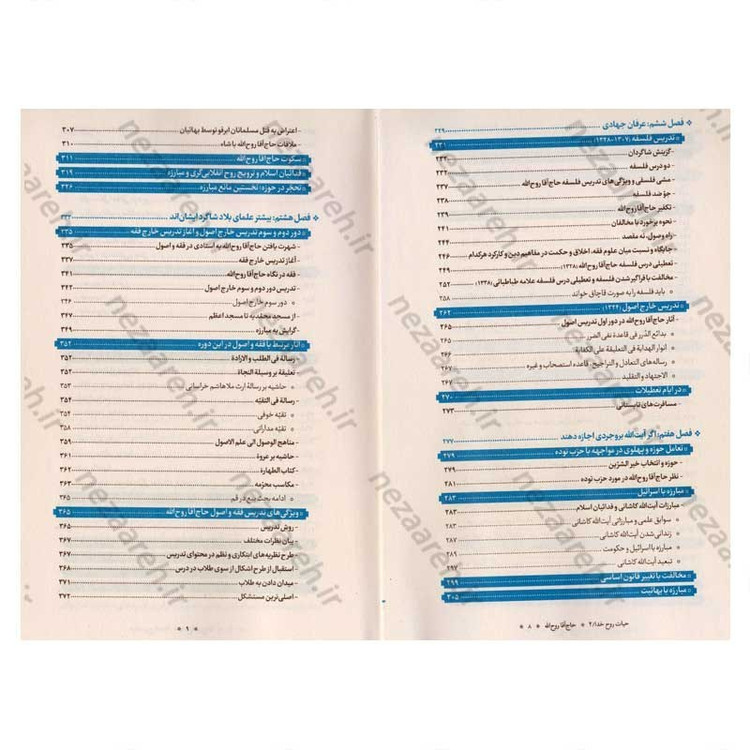 فصل ششم: عرفان جهادی ۲۲۹
تدریس فلسفه (۱۳۰۷-۱۳۲۸) ۲۳۱
گزینش شاگردان ۲۳۲
دو درس فلسفه
مشی فلسفی و ویژگی‌های تدریس فلسفه حاج‌آقا روح‌الله ۲۳۷
جوّ ضد فلسفه ۲۳۸
تکفیر حاج‌آقا روح‌الله ۲۳۹
نحوه برخورد با مخالفان ۲۴۱
راه وصول، نه مقصد ۲۴۴
جایگاه و نسبت میان علوم فقه، اخلاق و حکمت در مفاهیم دین و کارکرد هرکدام ۲۴۶
تعطیلی درس فلسفه حاج‌آقا روح‌الله (۱۳۲۸) ۲۴۹
مخالفت با فراگیر شدن فلسفه و تعطیلی درس فلسفه علامه طباطبائی (۱۳۲۸) ۲۵۲
باید فلسفه را به صورت قاچاق خواند ۲۵۸
تدریس خارج اصول (۱۳۲۴) ۲۶۲
آثار حاج‌آقا روح‌الله در دور اول تدریس اصول ۲۶۵
بدائع الدّرر فی قاعدة نفی الضرر ۲۶۵
انوار الهدایة فی التعلیقة علی الکفایة
رساله‌های التعادل و التراجیح، قاعده استصحاب و غیره
الاجتهاد و التقلید ۲۶۷
در ایام تعطیلات ۲۷۰
مسافرت‌های تابستانی ۲۷۳
فصل هفتم: اگر آیت‌الله بروجردی اجازه دهند ۲۷۷
تعامل حوزه و پهلوی در مواجهه با حزب توده ۲۷۹
حوزه و انتخاب خیر الشرّین ۲۷۹
نظر حاج‌آقا روح‌الله در مورد حزب توده ۲۸۱
مبارزه با اسرائیل ۲۸۳
مبارزات آیت‌الله کاشانی و فدائیان اسلام ۲۸۳
سوابق علمی و مبارزاتی آیت‌الله کاشانی ۲۸۳
زندانی شدن آیت‌الله کاشانی ۲۸۷
مبارزه با اسرائیل و حکومت
تبعید آیت‌الله کاشانی ۲۹۷
مخالفت با تغییر قانون اساسی ۲۹۹
مبارزه با بهائیت ۳۰۵
حیات روح خدا/۲ * حاج‌آقا روح‌الله * ۸ *
اعتراض به قتل مسلمانان ابرقو توسط بهائیان ۳۰۷
ملاقات حاج‌آقا روح‌الله با شاه ۳۱۰
سکوت حاج‌آقا روح‌الله ۳۱۱
فدائیان اسلام و ترویج روح انقلابی‌گری و مبارزه ۳۱۹
تحجر در حوزه؛ نخستین مانع مبارزه ۳۲۶
فصل هشتم: بیشتر علمای بلاد شاگرد ایشان‌اند ۳۳۳
دور دوم و سوم تدریس خارج اصول و آغاز تدریس خارج فقه ۳۳۵
شهرت یافتن حاج‌آقا روح‌الله به استادی در فقه و اصول ۳۳۵
آغاز تدریس خارج فقه ۳۳۷
فقه در نگاه حاج‌آقا روح‌الله ۳۴۱
تدریس دور دوم و سوم خارج اصول
دور سوم خارج اصول ۳۴۶
از مسجد محمدیه تا مسجد اعظم ۳۴۷
گرایش به مبارزه ۳۴۹
آثار مرتبط با فقه و اصول در این دوره ۳۵۲
رسالة فی الطلب و الارادة ۳۵۲
تعلیقة بر وسیلة النجاة ۳۵۲
حاشیه بر رسالهٔ ارث ملاهاشم خراسانی ۳۵۳
رسالة فی التقیّه ۳۵۴
تقیّه خوفی ۳۵۴
تقیّه مداراتی ۳۵۸
مناهج الوصول الی علم الاصول ۳۵۹
حاشیه بر عروة ۳۶۱
کتاب الطهارة ۳۶۲
مکاسب محرّمه ۳۶۳
ادامه بحث بیع در قم ۳۶۵
ویژگی‌های تدریس فقه و اصول حاج‌آقا روح‌الله ۳۶۵
روش تدریس ۳۶۵
بیان نظرات مختلف ۳۶۷
طرح نظریه‌های ابتکاری و نظم در محتوای تدریس ۳۶۷
استقبال از طرح اشکال از سوی طلاب در درس ۳۶۸
میدان دادن به طلاب ۳۷۱
اصلی‌ترین مستشکل ۳۷۲
* ۹ *
nezaareh.ir